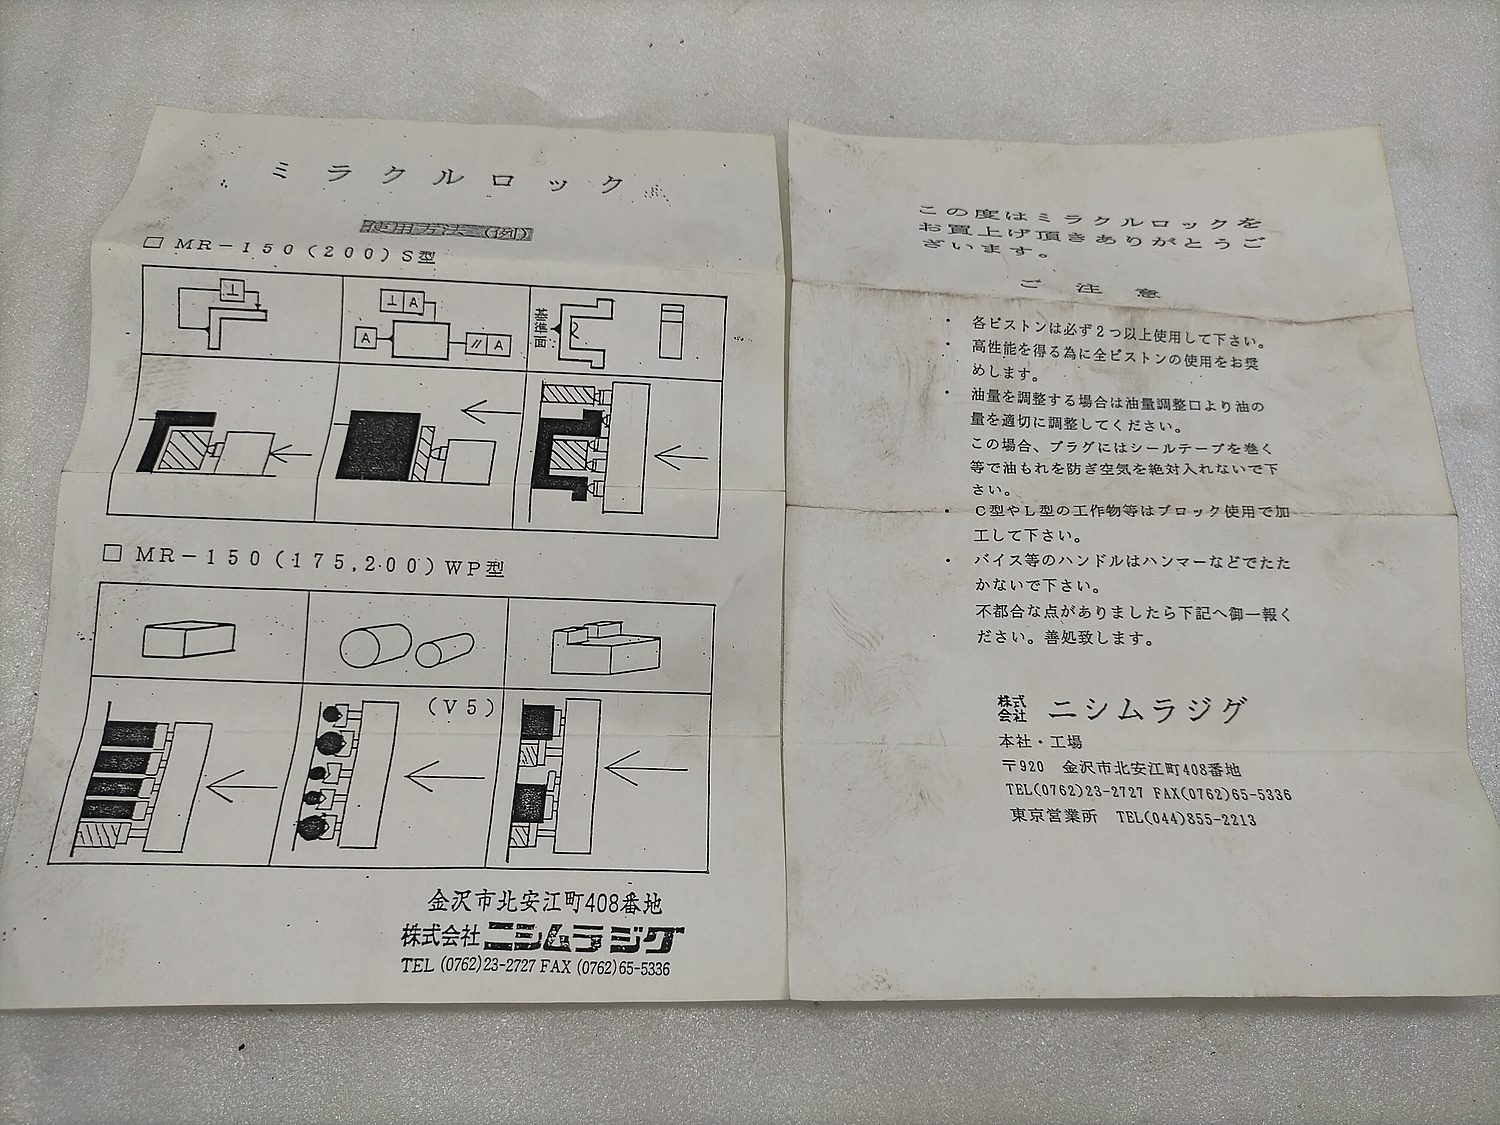 ミラクルロック
使用方法 (例)
□ MR-150(200)S型
⊥
⊥ A
A
// A
基準面
□ MR-150(175,200)WP型
(V5)
金沢市北安江町408番地
株式会社 ニシムラジグ
TEL (0762)23-2727 FAX (0762)65-5336
この度はミラクルロックを
お買上げ頂きありがとうご
ざいます。
ご注意
・ 各ピストンは必ず2つ以上使用して下さい。
・ 高性能を得る為に全ピストンの使用をお奨
めします。
・ 油量を調整する場合は油量調整口より油の
量を適切に調整してください。
この場合、プラグにはシールテープを巻く
等で油もれを防ぎ空気を絶対入れないで下
さい。
・ C型やL型の工作物等はブロック使用で加
工して下さい。
・ バイス等のハンドルはハンマーなどでたた
かないで下さい。
不都合な点がありましたら下記へ御一報く
ださい。善処致します。
株式会社 ニシムラジグ
本社・工場
〒920 金沢市北安江町408番地
TEL(0762)23-2727 FAX(0762)65-5336
東京営業所 TEL(044)855-2213